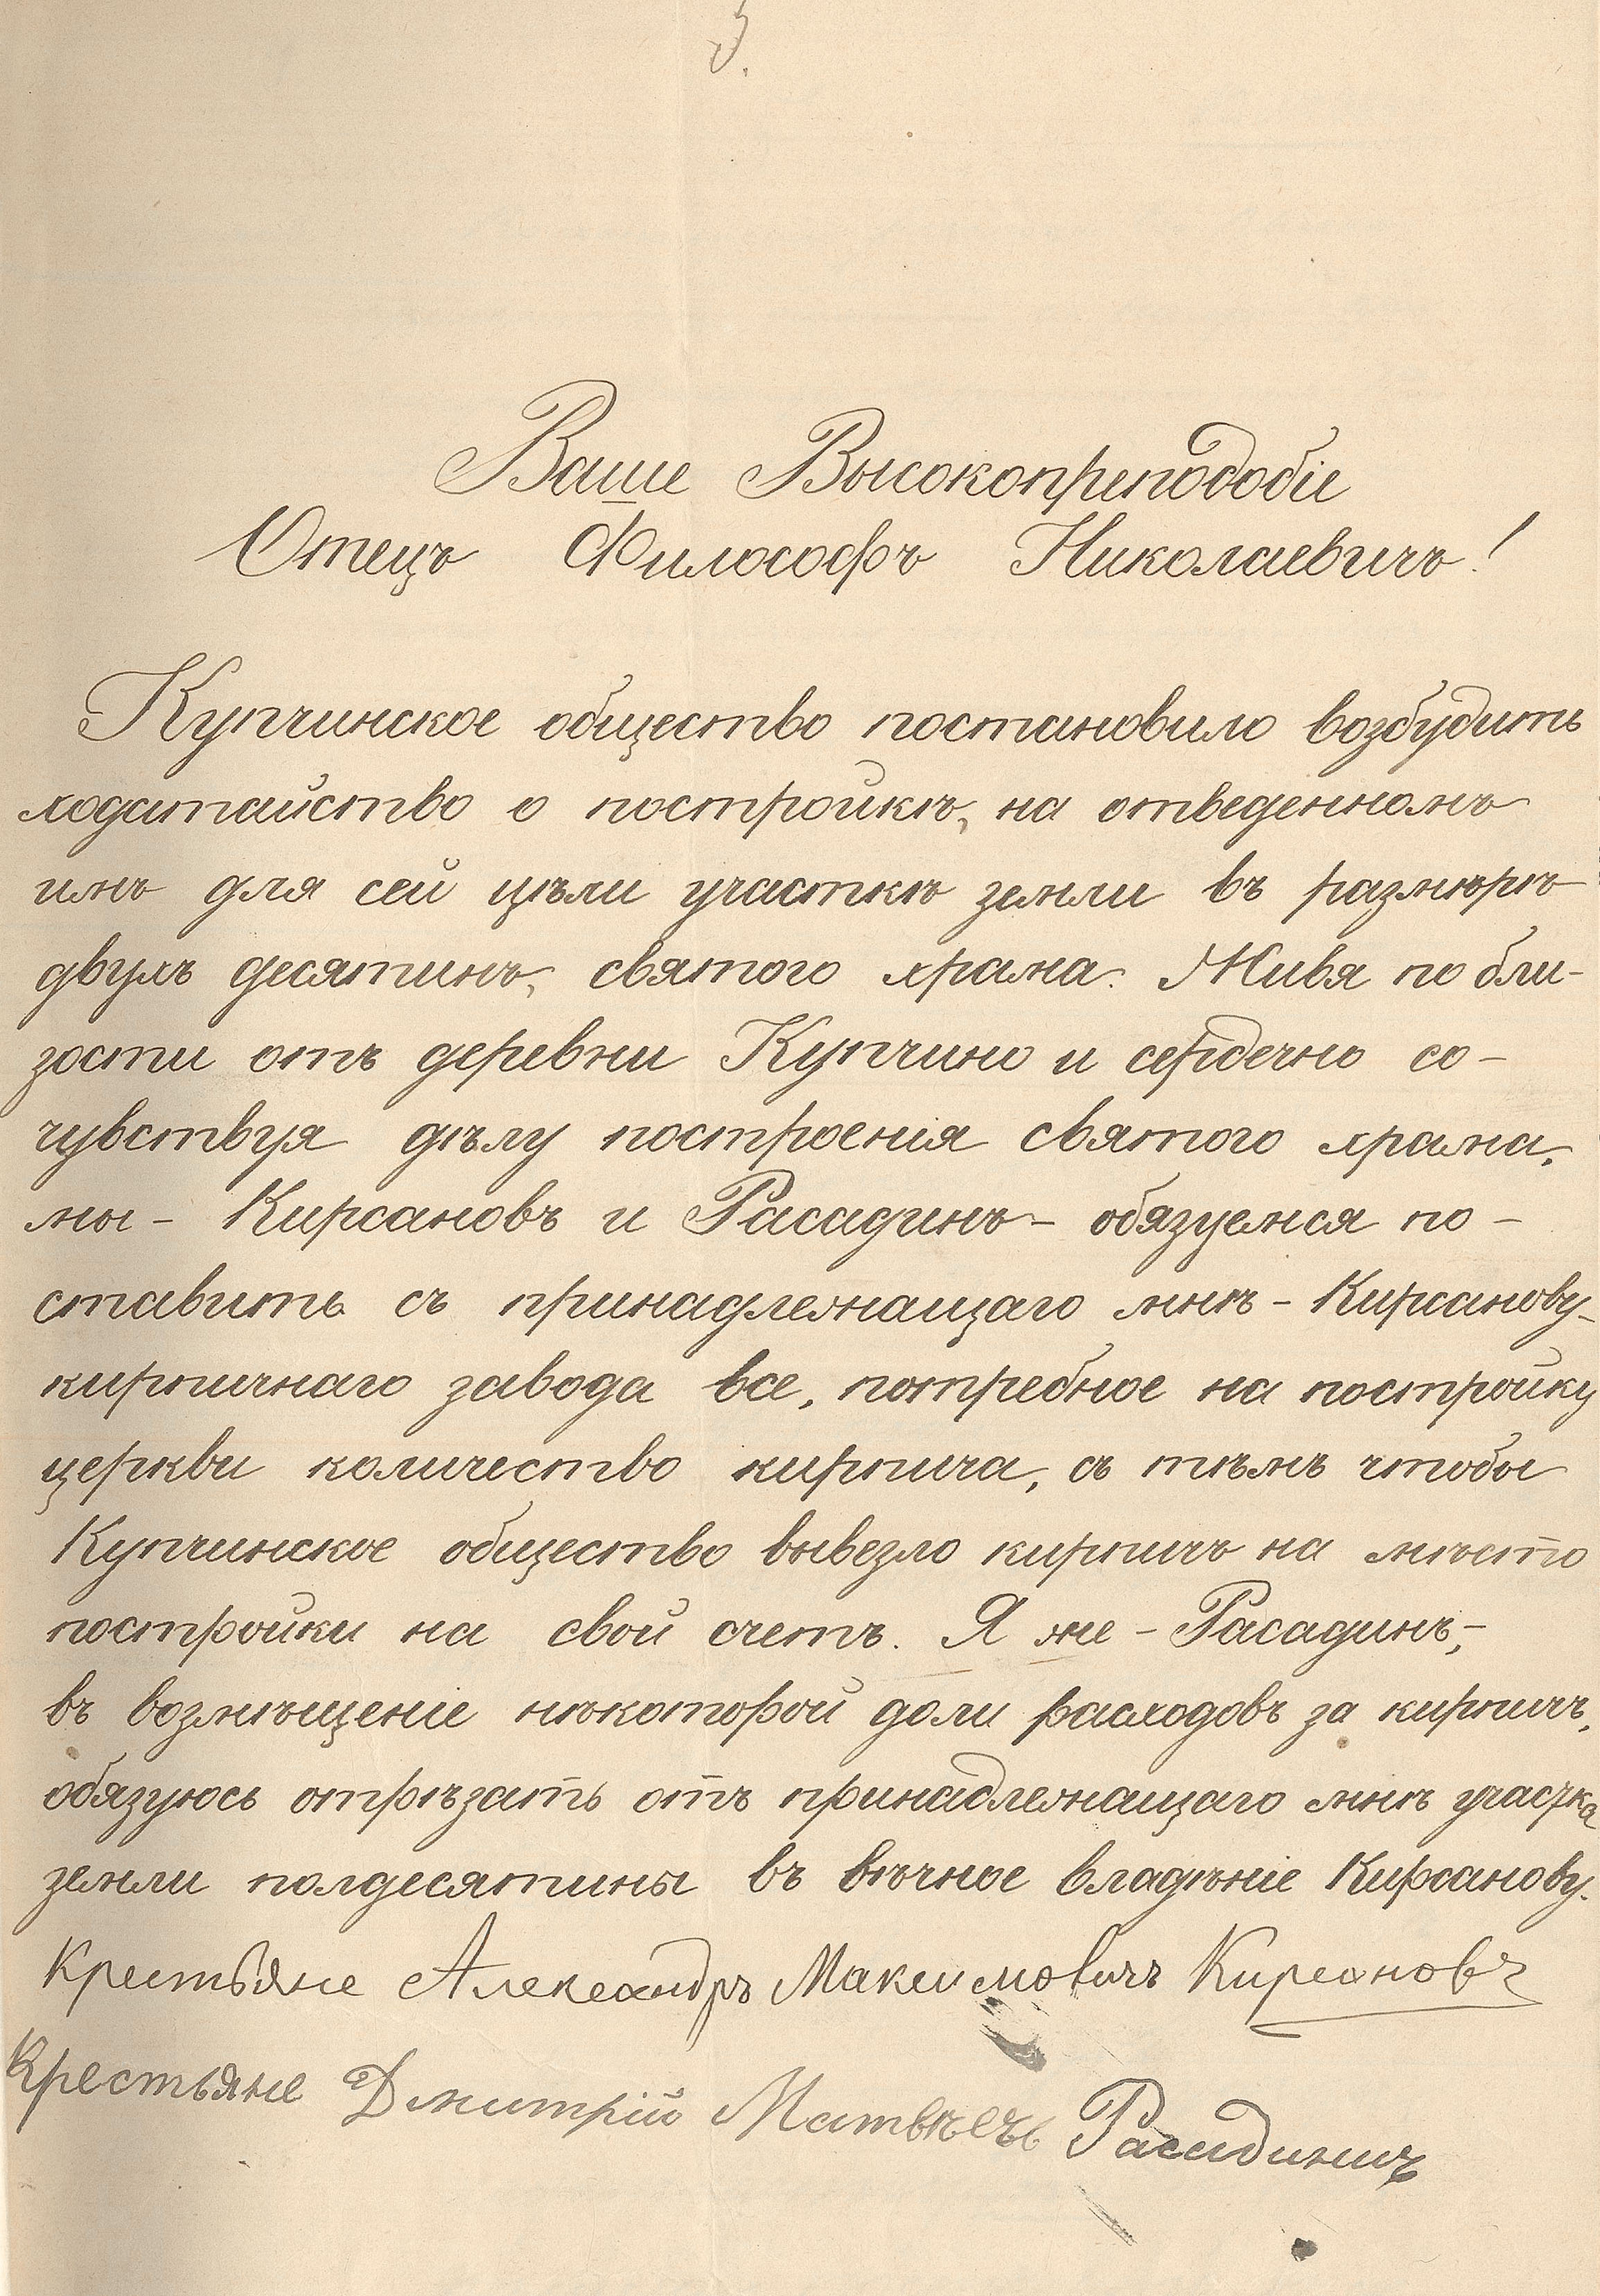 3.
Ваше Высокопреподобіе
Отецъ Философъ Николаевичъ!
Купчинское общество постановило возбудить
ходатайство о постройкѣ, на отведенномъ
имъ для сей цѣли участкѣ земли въ размѣрѣ
двухъ десятинъ, святого храма. Живя по бли-
зости отъ деревни Купчино и сердечно со-
чувствуя дѣлу построенія святого храма,
мы - Кирсановъ и Расадинъ - обязуемся по-
ставить съ принадлежащаго мнѣ - Кирсанову -
кирпичнаго завода все, потребное на постройку
церкви количество кирпича, съ тѣмъ чтобы
Купчинское общество вывезло кирпичъ на мѣсто
постройки на свой счетъ. Я же - Расадинъ, -
въ возмѣщеніе нѣкоторой доли расходовъ за кирпичъ,
обязуюсь отрѣзать отъ принадлежащаго мнѣ участка
земли полдесятины въ вѣчное владѣніе Кирсанову.
Крестьяне Александръ Максимовичъ Кирсановъ
Крестьяне Дмитрій Расадинъ